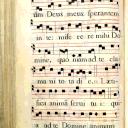 tuum Deus meus sperantem
in te: mise re re mihi Do
mine, quoniam ad te cla
ma vi to ta di e: Læti
fica animā servi tui: qui
a ad te Domine animam